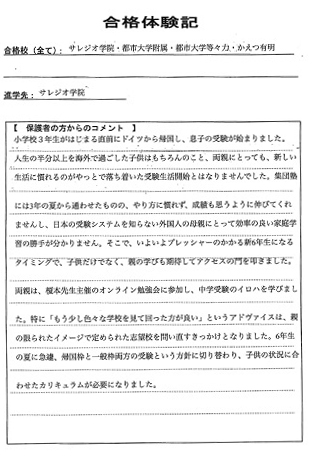 合格体験記
合格校（全て）：サレジオ学院・都市大学附属・都市大学等々力・かえつ有明
進学先：サレジオ学院
【 保護者の方からのコメント 】
小学校３年生がはじまる直前にドイツから帰国し、息子の受験が始まりました。
人生の半分以上を海外で過ごした子供はもちろんのこと、両親にとっても、新しい
生活に慣れるのがやっとで落ち着いた受験生活開始とはなりませんでした。集団塾
には３年の夏から通わせたものの、やり方に慣れず、成績も思うように伸びてくれ
ませんし、日本の受験システムを知らない外国人の母親にとって効率の良い家庭学
習の勝手が分かりません。そこで、いよいよプレッシャーのかかる新6年生になる
タイミングで、子供だけでなく、親の学びも期待してアクセスの門を叩きました。
両親は、榎本先生主催のオンライン勉強会に参加し、中学受験のイロハを学びまし
た。特に「もう少し色々な学校を見て回った方が良い」というアドヴァイスは、親
の限られたイメージで定められた志望校を問い直すきっかけとなりました。6年生
の夏に急遽、帰国枠と一般枠両方の受験という方針に切り替わり、子供の状況に合
わせたカリキュラムが必要になりました。